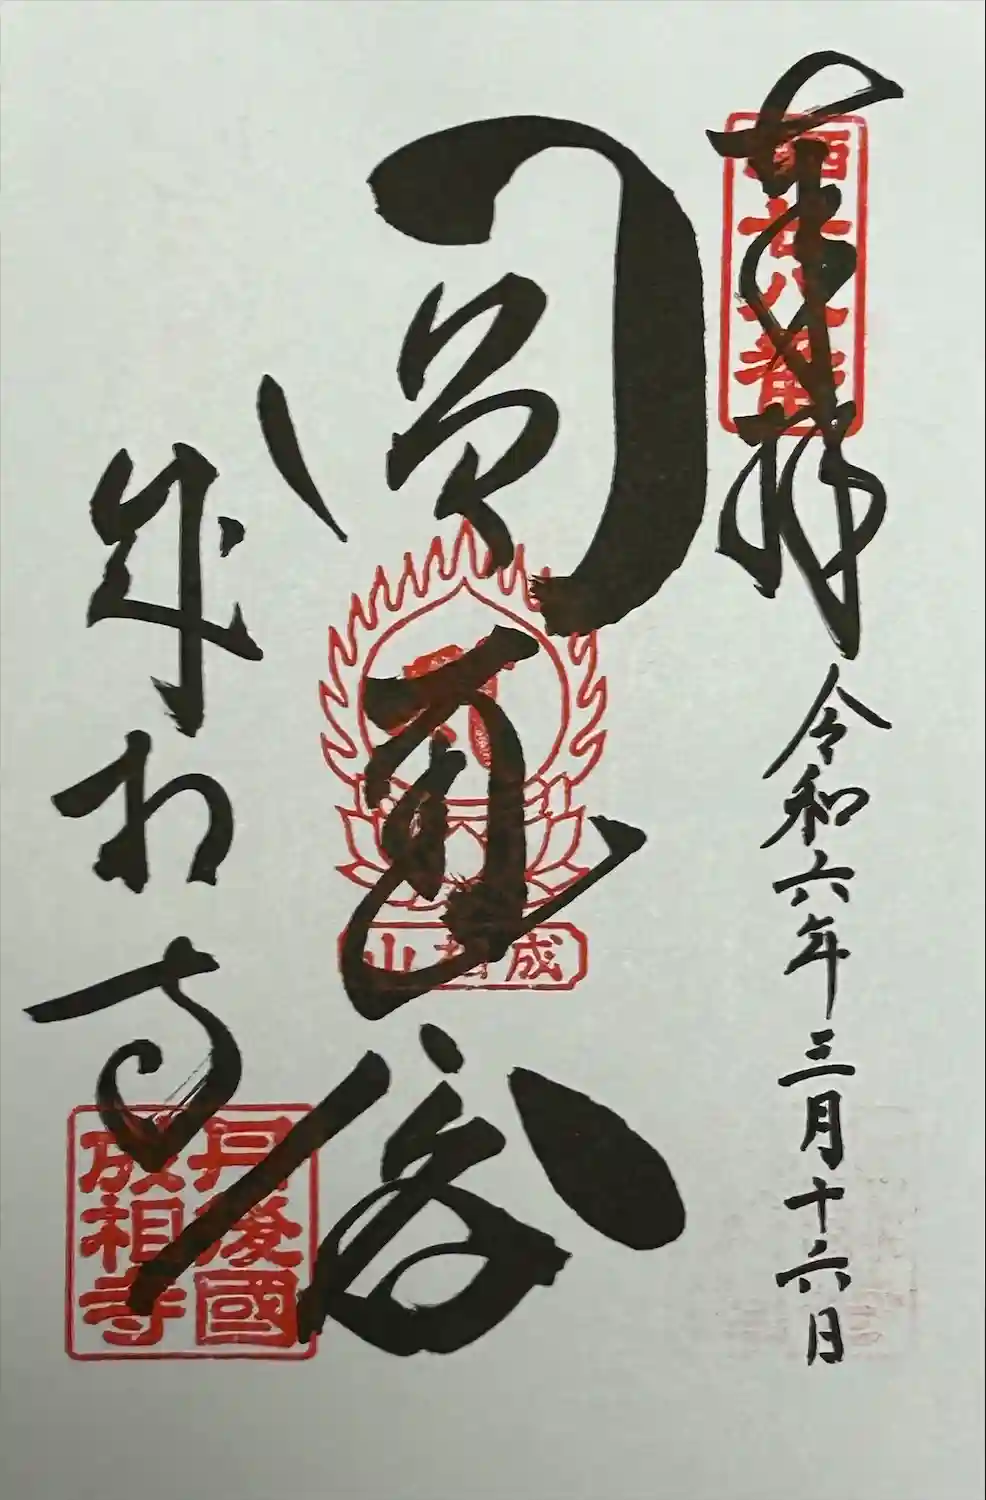 奉拝
西國廿八番
令和六年三月十六日
圓
成相山
成相寺
丹後國
成相寺